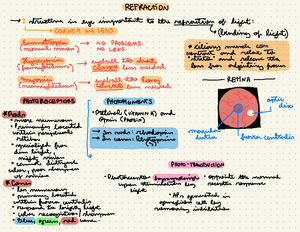 REFRACTION
→ 2 structures in eye important to the refraction of light:
CORNEA and LENS
(Bending of light)
Emmetropia → NO PROBLEMS.
(normal vision) NO LENS.
Hyperopia → eyeball too short
(farsightedness) convex lens needed
Myopia → eyeball too long
(nearsightedness) concave lens needed
* ciliary muscle can
contract and relax to
and release the
lens for adjusting focus
RETINA
optic
disc
macula
lutea
fovea centralis
PHOTORECEPTORS
* Rods:
• more numerous
• located
within
retina
• specialized for
dim light
night vision
• cannot distinguish
color, poor sharpness
of vision
* Cones:
• less numerous
• located
within fovea centralis
• respond to bright light
• color recognition / sharpness
• Blue, green, red cone.
PHOTOPIGMENTS
→ Retinal (VITAMIN A) and
Opsin (PROTEIN)
→ In rods: rhodopsin
→ In cones: 
PHOTO-TRANSDUCTION
Photoreceptor hyperpolarizes → opposite the normal
upon stimulation by receptor response
light.
• APs generated in
ganglion cell by
removing inhibition